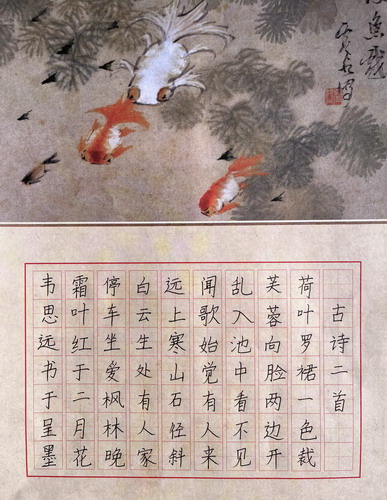 古诗二首
荷叶罗裙一色裁
芙蓉向脸两边开
乱入池中看不见
闻歌始觉有人来
远上寒山石径斜
白云生处有人家
停车坐爱枫林晚
霜叶红于二月花
韦思远书于呈墨